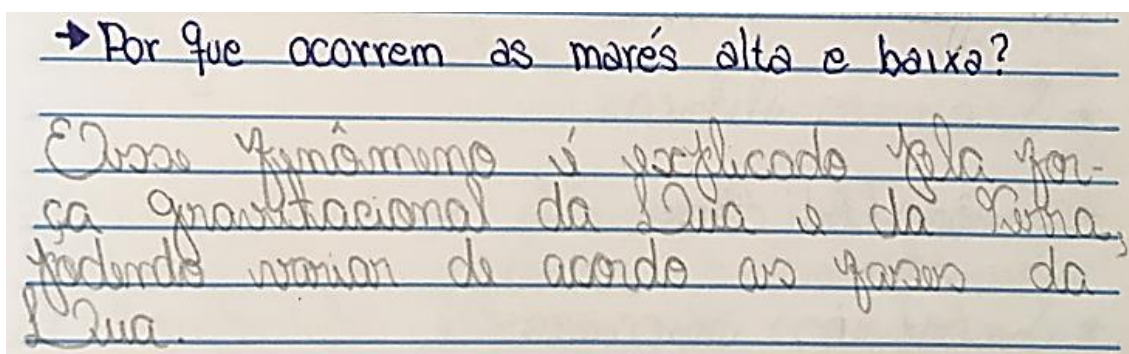 → Por que ocorrem as marés alta e baixa?
Esse fenômeno é explicado pela for-
ça gravitacional da Lua e da Terra,
podendo variar de acordo as fases da
Lua.